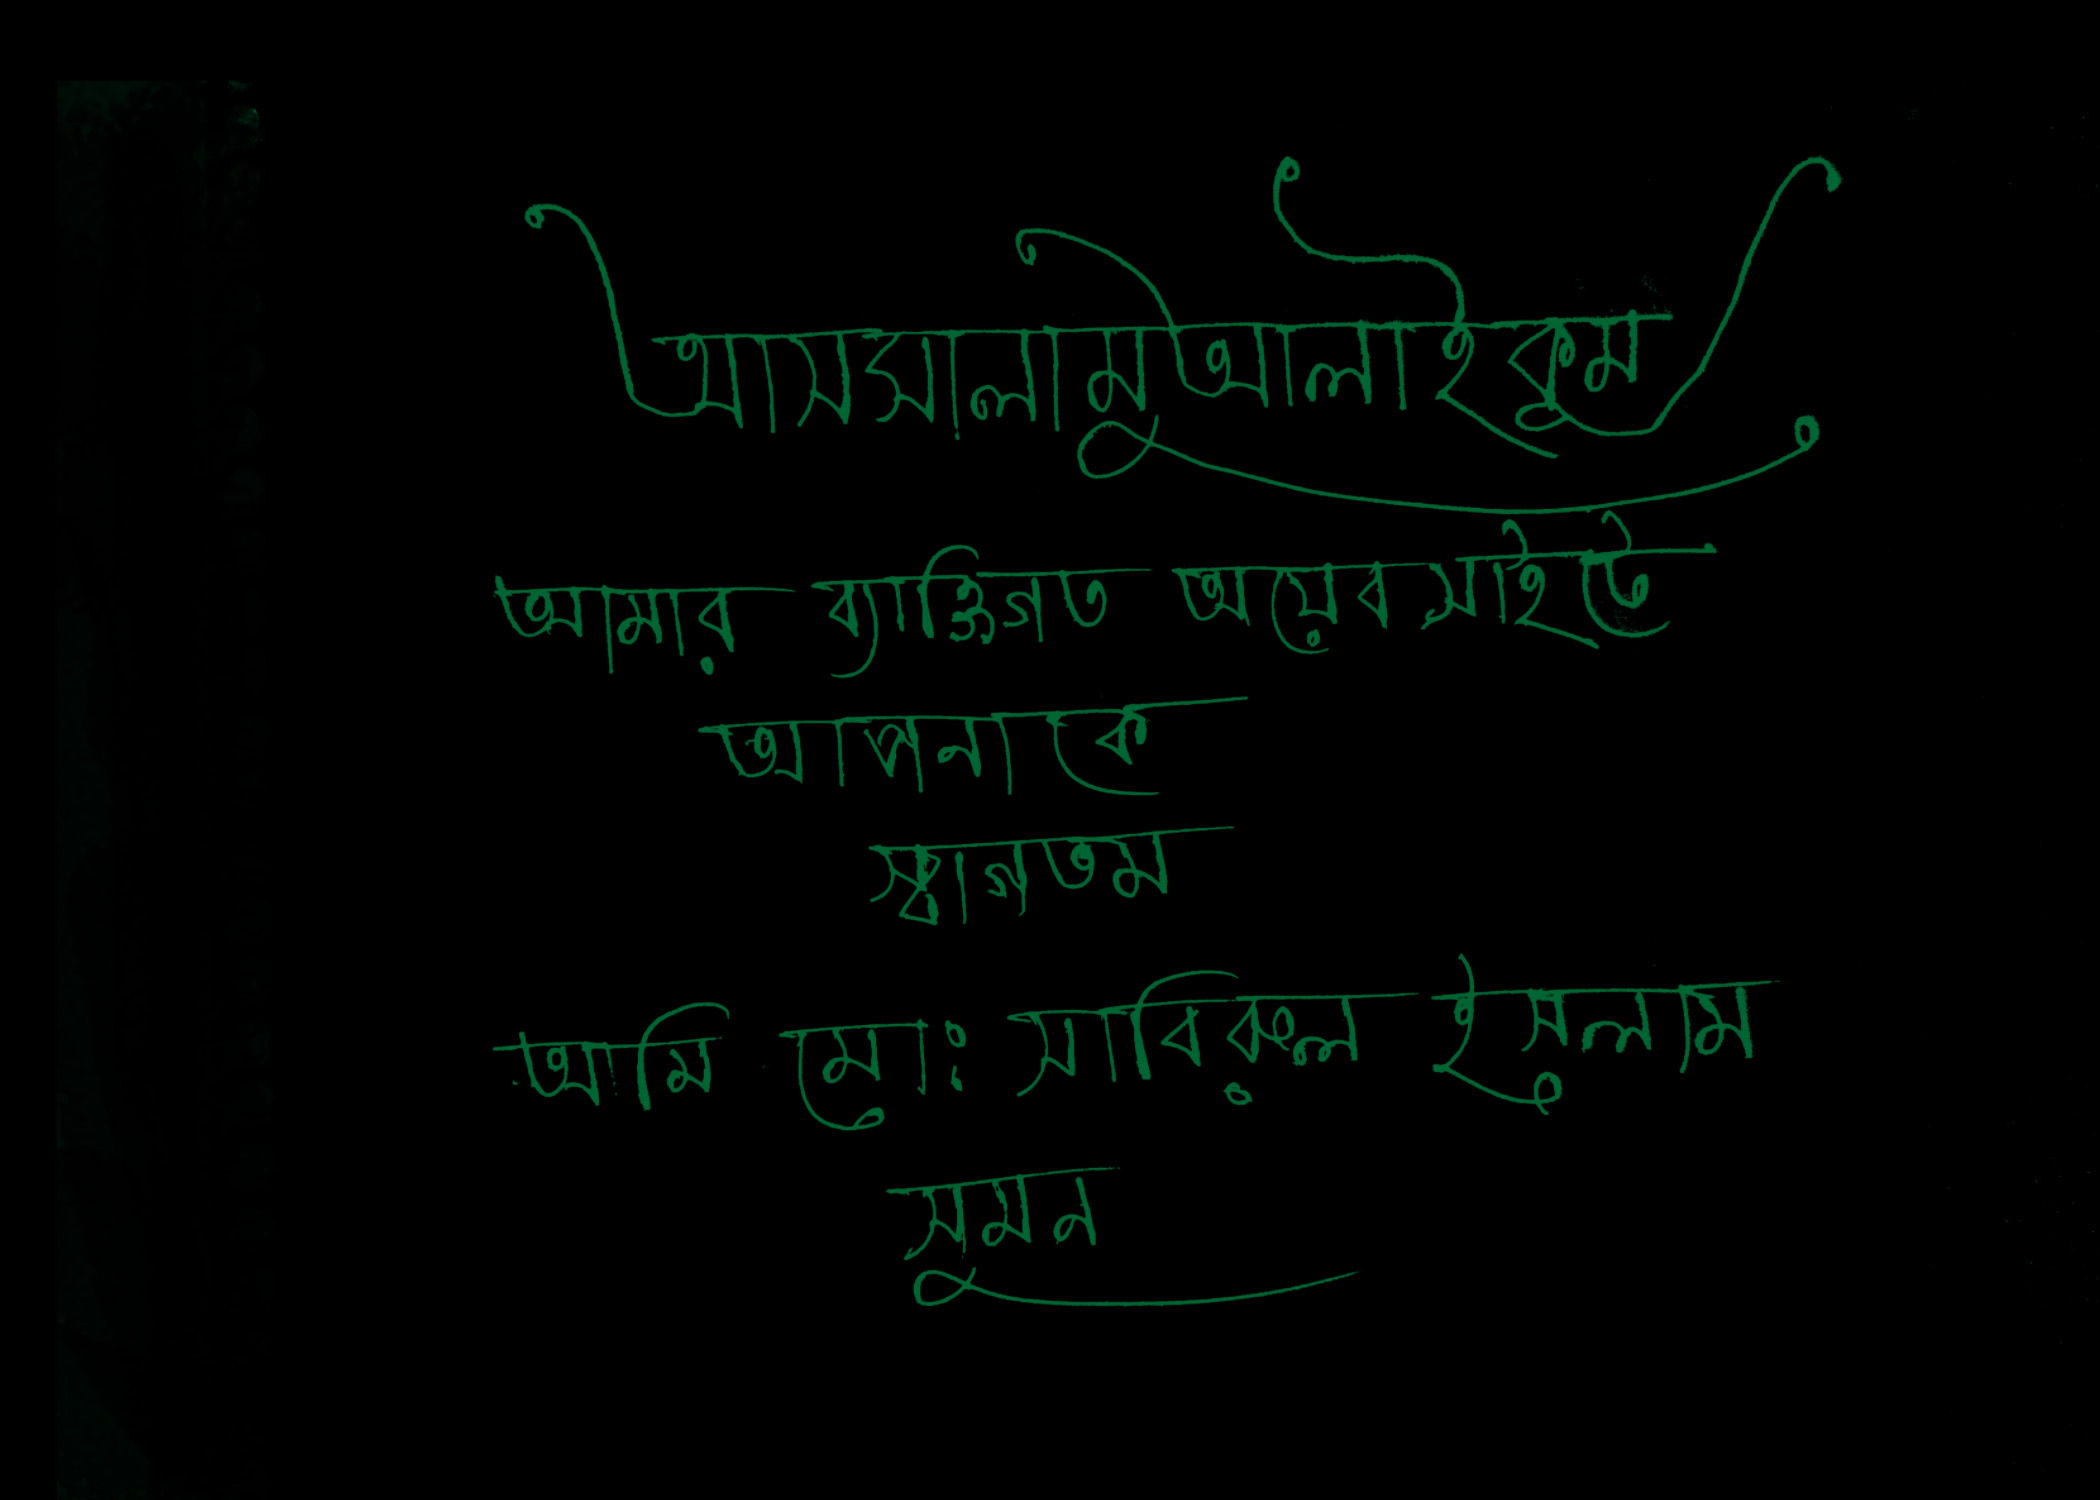 আসসালামু আলাইকুম
আমার ব্যাক্তিগত অয়েব সাইটে
আপনাকে
স্বাগতম
আমি মোঃ সাবিরুল ইসলাম
সুমন